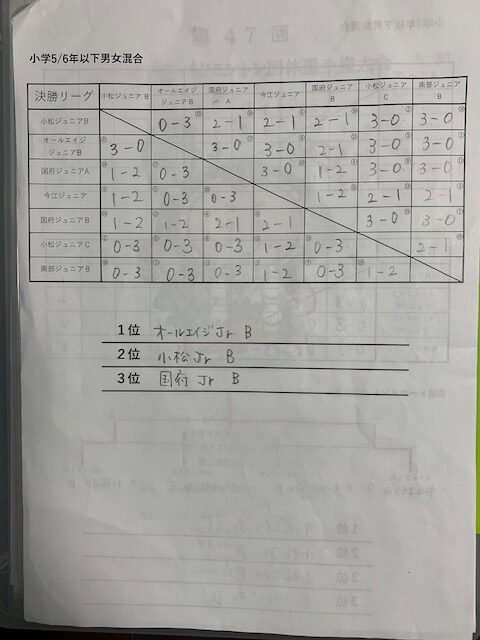 小学5/6年以下男女混合
決勝リーグ 小松ジュニアB オールエイジジュニアB 国府ジュニアA 今江ジュニア 国府ジュニアB 小松ジュニアC 南部ジュニアB
小松ジュニアB 0-3 2-1 2-1 2-1 3-0 3-0
オールエイジジュニアB 3-0 3-0 3-0 2-1 3-0 3-0
国府ジュニアA 1-2 0-3 3-0 1-2 3-0 3-0
今江ジュニア 1-2 0-3 0-3 1-2 2-1 2-1
国府ジュニアB 1-2 1-2 2-1 2-1 3-0 3-0
小松ジュニアC 0-3 0-3 0-3 1-2 0-3 2-1
南部ジュニアB 0-3 0-3 0-3 1-2 0-3 1-2
1位 オールエイジJr B
2位 小松Jr B
3位 国府 Jr B